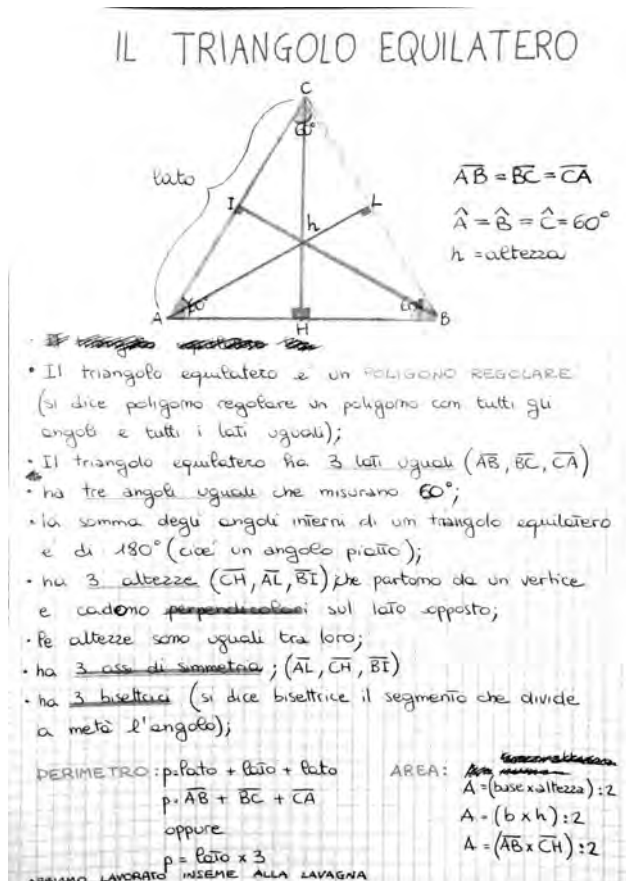 IL TRIANGOLO EQUILATERO
C
60°
lato
I
L
h
A
60°
H
60°
B
AB = BC = CA
Â = B̂ = Ĉ = 60°
h = altezza
• Il triangolo equilatero è un POLIGONO REGOLARE
(si dice poligono regolare un poligono con tutti gli
angoli e tutti i lati uguali);
• Il triangolo equilatero ha 3 lati uguali (AB, BC, CA)
• ha tre angoli uguali che misurano 60°;
• la somma degli angoli interni di un triangolo equilatero
è di 180° (cioè un angolo piatto);
• ha 3 altezze (CH, AL, BI) che partono da un vertice
e cadono perpendicolari sul lato opposto;
• le altezze sono uguali tra loro;
• ha 3 assi di simmetria; (AL, CH, BI)
• ha 3 bisettrici (si dice bisettrice il segmento che divide
a metà l'angolo);
PERIMETRO: p=lato + lato + lato
p= AB + BC + CA
oppure
p = lato x 3
AREA:
A =(base x altezza) :2
A = (b x h) :2
A = (AB x CH) :2
ABBIAMO LAVORATO INSIEME ALLA LAVAGNA